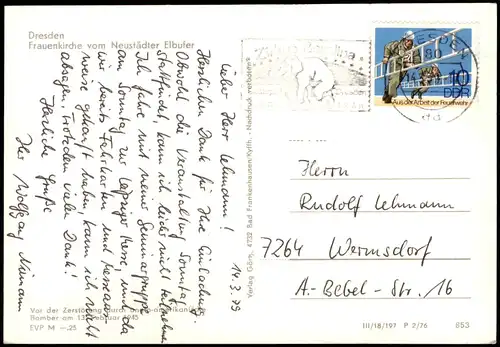 Dresden
Frauenkirche vom Neustädter Elbufer
14.3.79
Lieber Herr Lehmann!
Herzlichen Dank für Ihre Einladung.
Obwohl die Veranstaltung Sonntag
stattfindet, kann ich leider nicht teilnehmen.
Ich fahre mit meiner Seminargruppe
am Sonntag zur Leipziger Messe, und da
wir bereits Fahrkarten und Messeaus-
weise gekauft haben, kann ich nicht
absagen. Trotzdem vielen Dank!
Herzliche Grüße
Ihr Wolfgang
Vor der Zerstörung durch anglo-amerikanische
Bomber am 13. Februar 1945
EVP M –.25
Verlag Görg, 4732 Bad Frankenhausen/Kyffh. · Nachdruck verboten
DRESDEN
80
10
DDR
Aus der Arbeit der Feuerwehr
Herrn
Rudolf Lehmann
7264 Wermsdorf
A.-Bebel-Str. 16
III/18/197 P 2/76 853